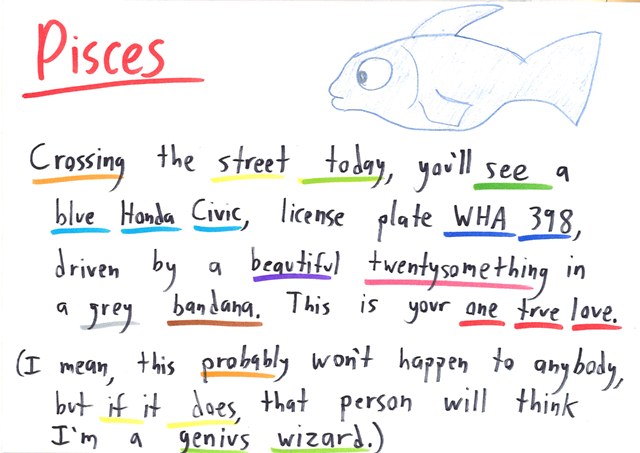 Pisces
Crossing the street today, you'll see a
blue Honda Civic, license plate WHA 398,
driven by a beautiful twentysomething in
a grey bandana. This is your one true love.
(I mean, this probably won't happen to anybody,
but if it does, that person will think
I'm a genius wizard.)